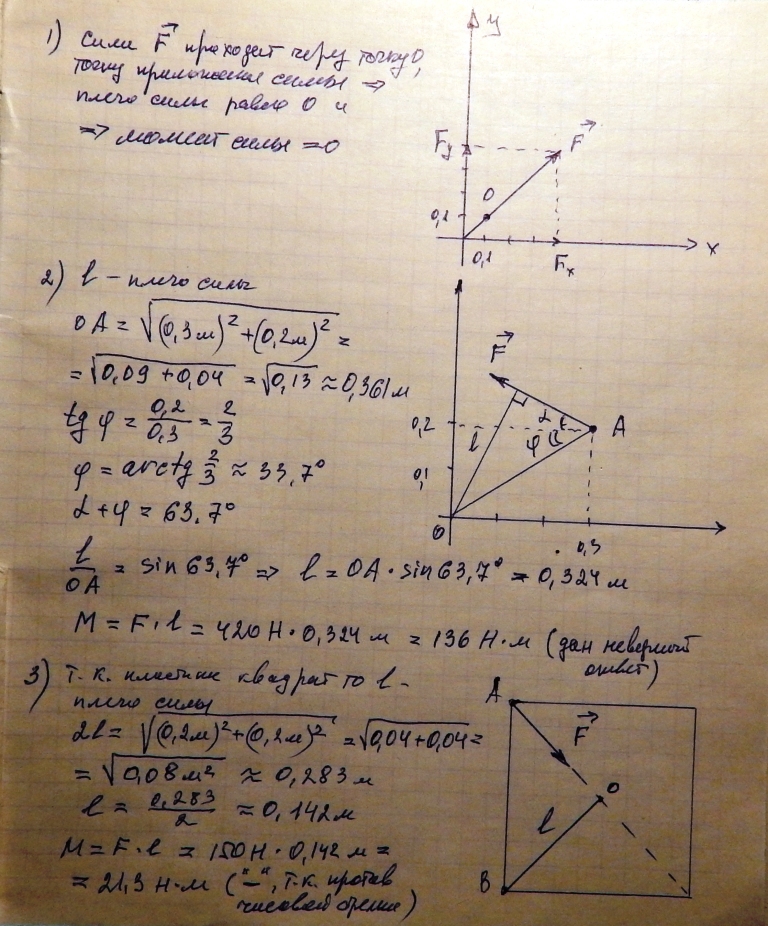 1) Сили F проходит через точку O,
точку приложения силы ⇒
плечо силы равно 0 и
⇒ момент силы = 0
y
F_y
F
O
0,1
0,1
F_x
x
2) l – плечо силы
OA = √((0,3м)² + (0,2м)²) =
= √(0,09 + 0,04) = √0,13 ≈ 0,361 м
tg φ = 0,2/0,3 = 2/3
φ = arctg 2/3 ≈ 33,7°
α + φ = 63,7°
l/OA = sin 63,7° ⇒ l = OA · sin 63,7° = 0,324 м
M = F · l = 420 Н · 0,324 м = 136 Н·м (дан неверный
ответ)
F
0,2
α
A
l
φ
0,1
0
0,3
3) Т.к. пластина квадрат то l –
плечо силы
2l = √((0,2м)² + (0,2м)²) = √(0,04 + 0,04) =
= √(0,08 м²) ≈ 0,283 м
l = 0,283/2 ≈ 0,142 м
M = F · l = 150 Н · 0,142 м =
= 21,3 Н·м ("–", т.к. против
часовой стрелки)
A
F
O
l
B